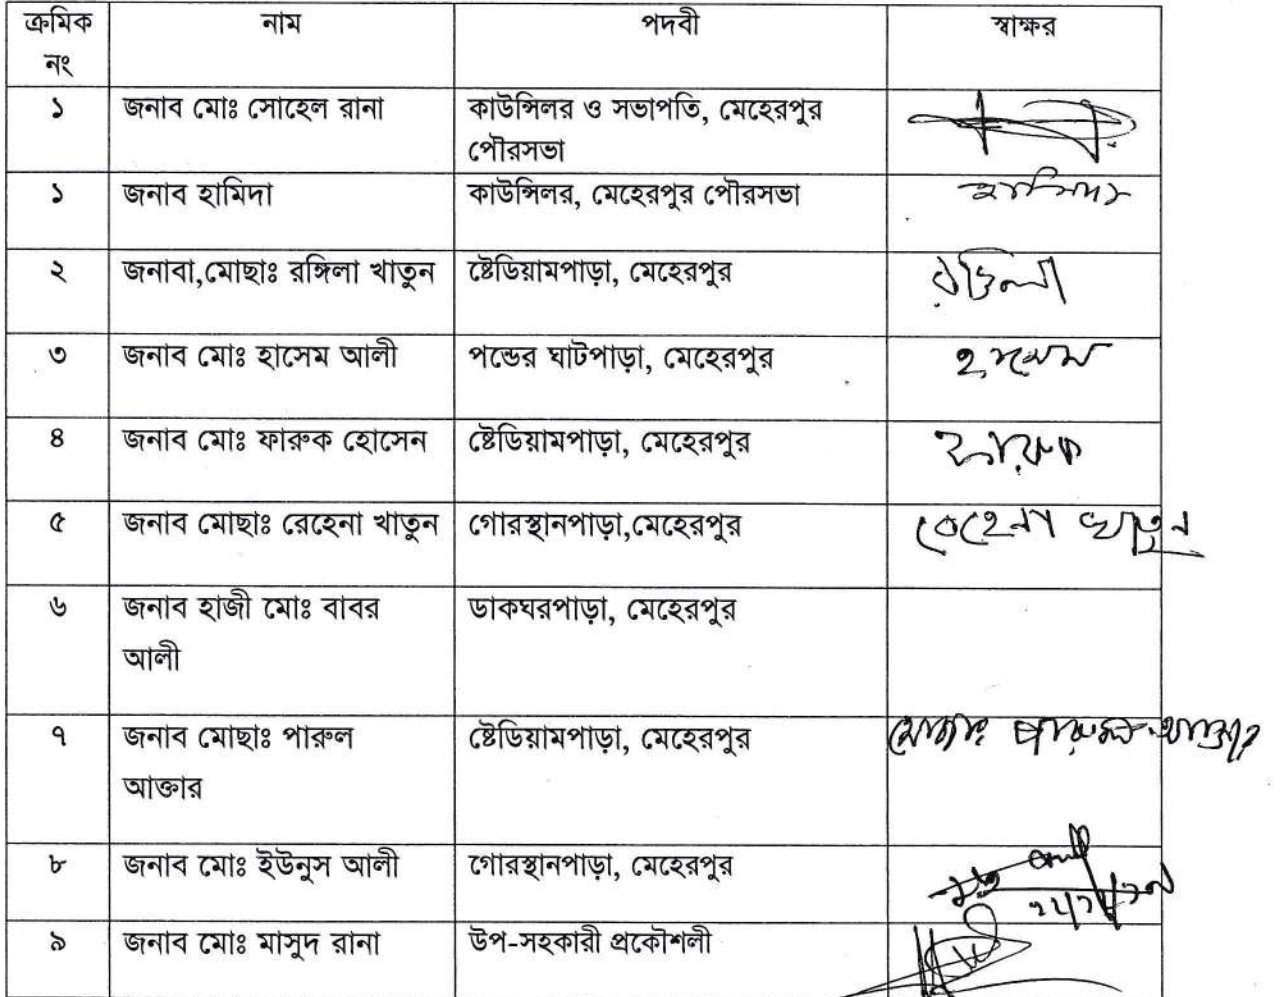 ক্রমিক নং
নাম
পদবী
স্বাক্ষর
১
জনাব মোঃ সোহেল রানা
কাউন্সিলর ও সভাপতি, মেহেরপুর
পৌরসভা
১
জনাব হামিদা
কাউন্সিলর, মেহেরপুর পৌরসভা
হামিদা
২
জনাবা,মোছাঃ রঙ্গিলা খাতুন
ষ্টেডিয়ামপাড়া, মেহেরপুর
৩
জনাব মোঃ হাসেম আলী
পন্ডের ঘাটপাড়া, মেহেরপুর
হাসেম
৪
জনাব মোঃ ফারুক হোসেন
ষ্টেডিয়ামপাড়া, মেহেরপুর
ফারুক
৫
জনাব মোছাঃ রেহেনা খাতুন
গোরস্থানপাড়া,মেহেরপুর
রেহেনা খাতুন
৬
জনাব হাজী মোঃ বাবর
আলী
ডাকঘরপাড়া, মেহেরপুর
৭
জনাব মোছাঃ পারুল
আক্তার
ষ্টেডিয়ামপাড়া, মেহেরপুর
মোছাঃ পারুল আক্তার
৮
জনাব মোঃ ইউনুস আলী
গোরস্থানপাড়া, মেহেরপুর
৯
জনাব মোঃ মাসুদ রানা
উপ-সহকারী প্রকৌশলী